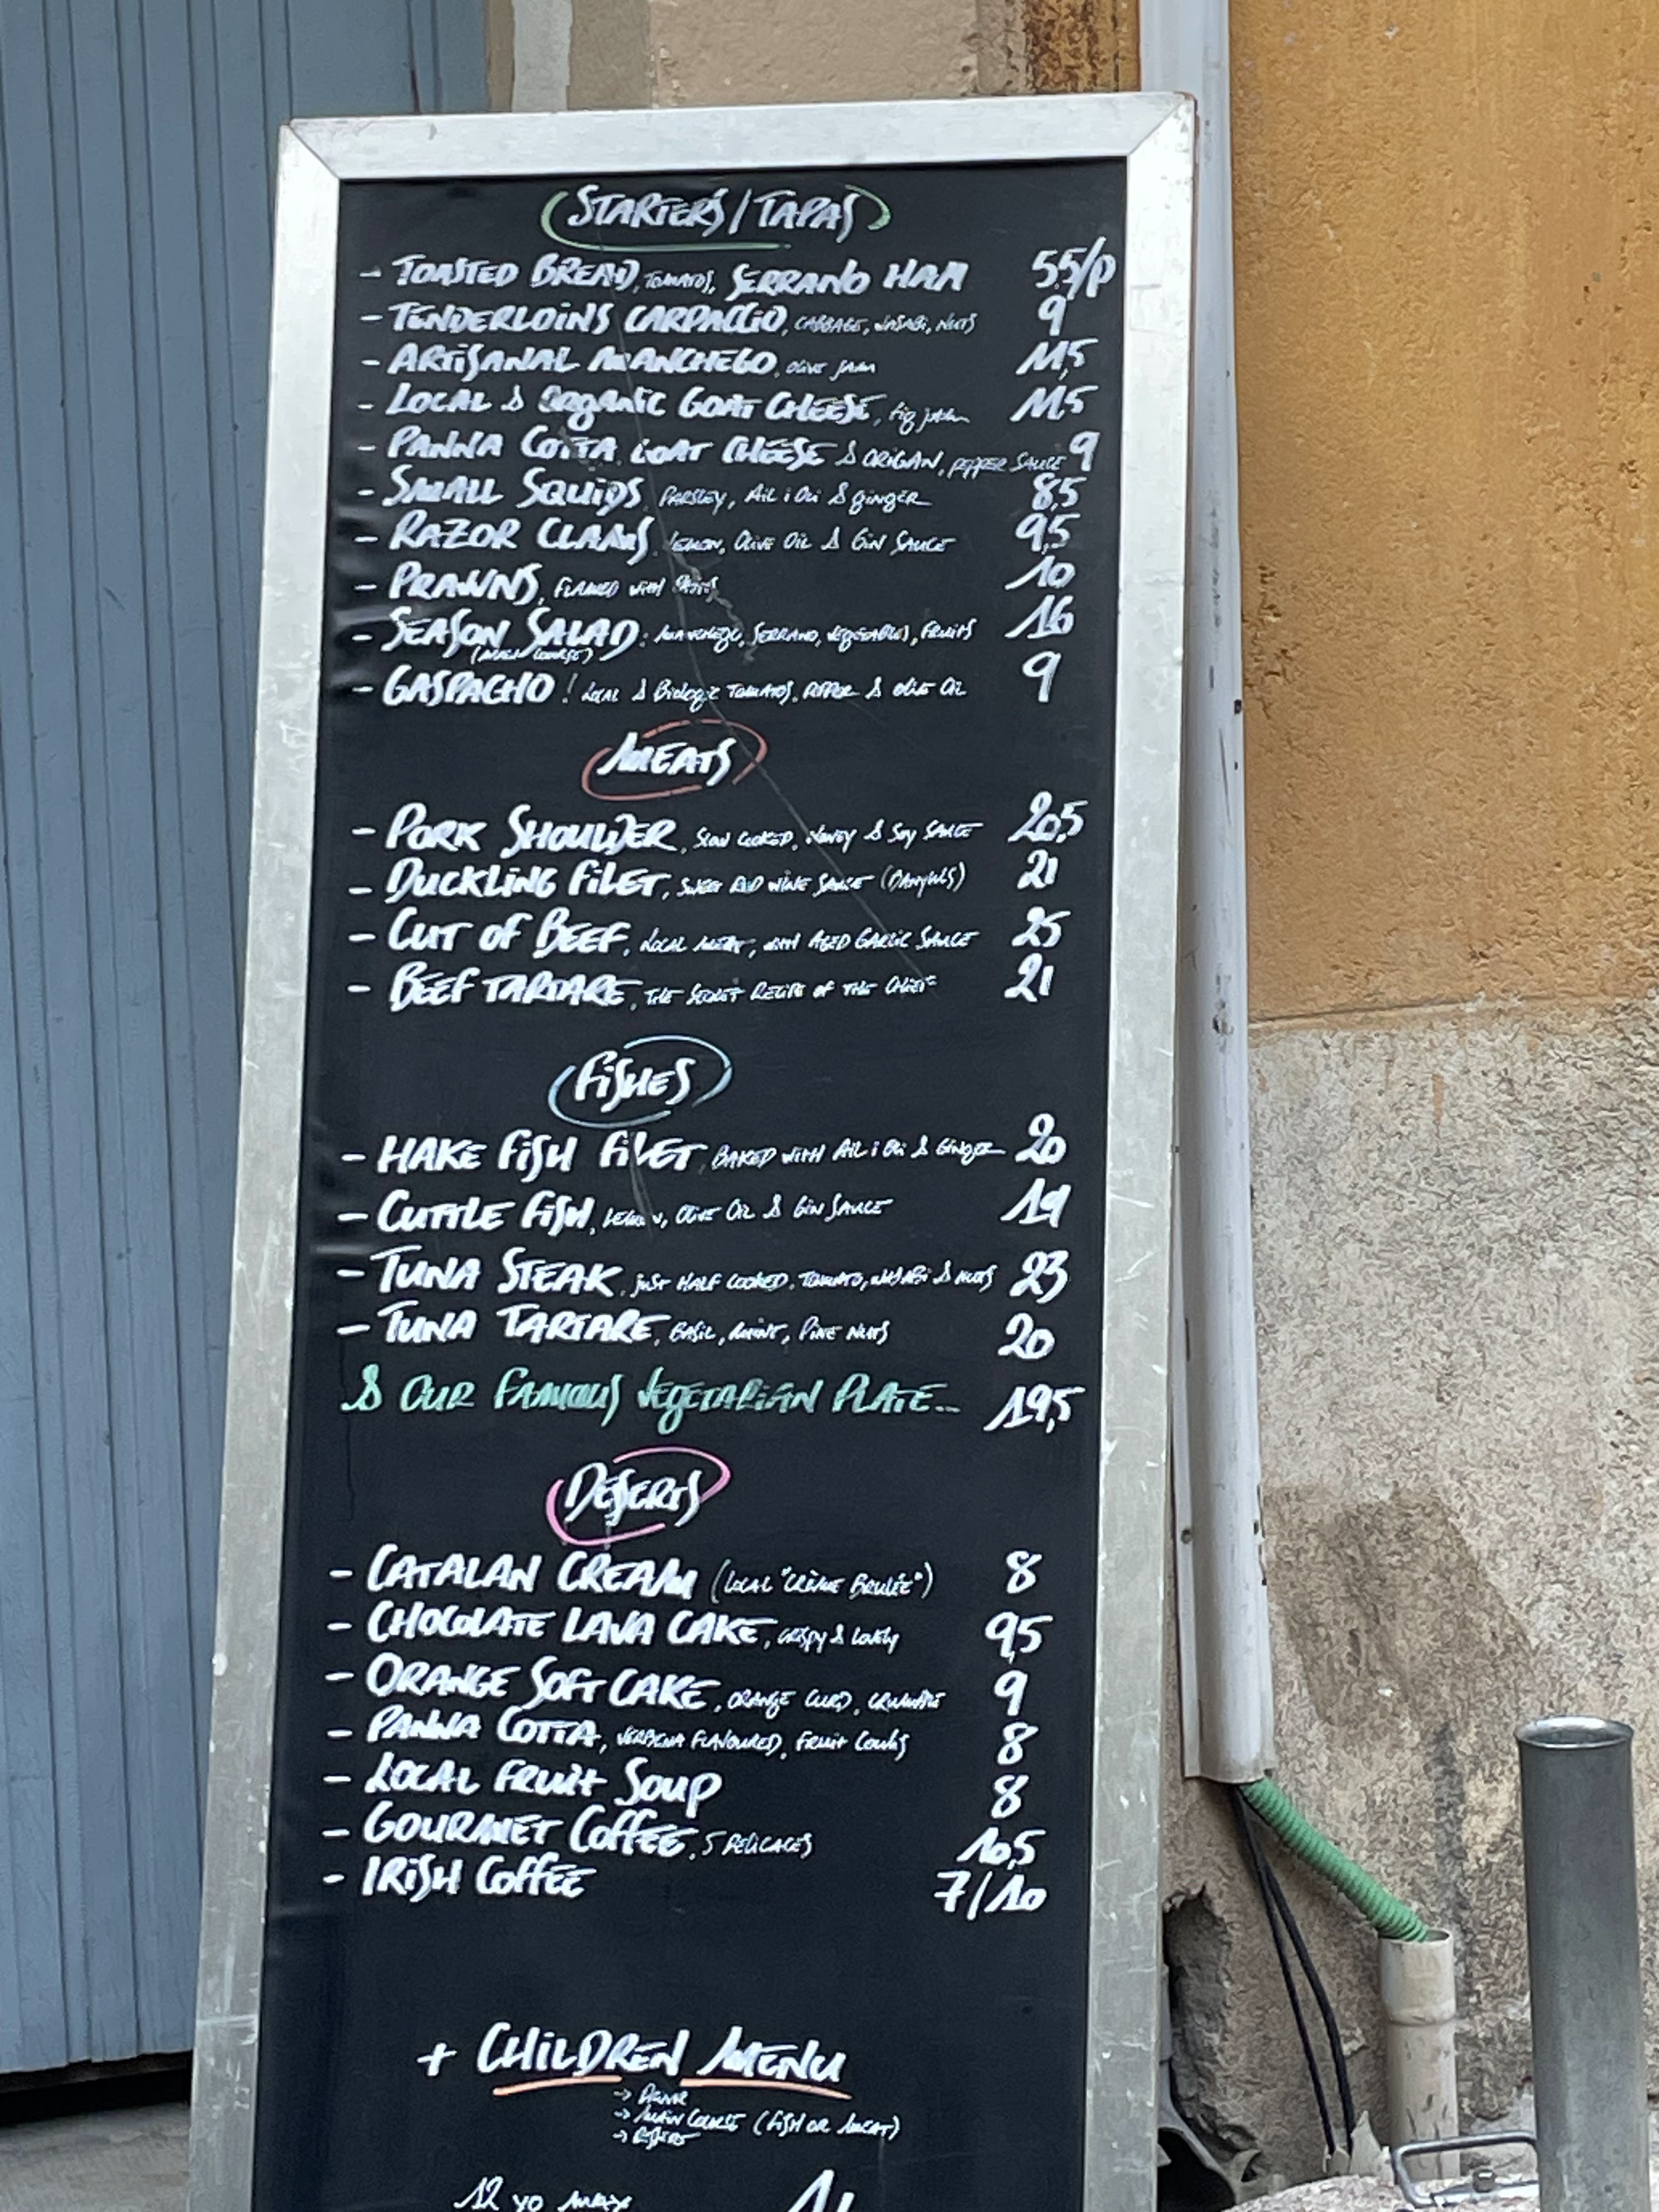 STARTERS / TAPAS
- TOASTED BREAD, TOMATOS, SERRANO HAM 5,5/P
- TENDERLOINS CARPACCIO, CABBAGE, WASABI, NUTS 9
- ARTISANAL MANCHEGO, OLIVE JAM 11,5
- LOCAL & ORGANIC GOAT CHEESE, fig jam 11,5
- PANNA COTTA GOAT CHEESE & ORIGAN, PEPPER SAUCE 9
- SMALL SQUIDS, PARSLEY, AIL i OLI & GINGER 8,5
- RAZOR CLAMS, LEMON, OLIVE OIL & GIN SAUCE 9,5
- PRAWNS, FLAMED WITH 10
- SEASON SALAD: MANCHEGO, SERRANO, VEGETABLES, FRUITS 16
(MAIN COURSE)
- GASPACHO! LOCAL & BIOLOGIC TOMATOS, PEPPER & OLIVE OIL 9
MEATS
- PORK SHOULDER, SLOW COOKED, HONEY & SOY SAUCE 20,5
- DUCKLING FILET, SWEET RED WINE SAUCE (BANYULS) 21
- CUT OF BEEF, LOCAL MEAT, WITH AGED GARLIC SAUCE 25
- BEEF TARTARE, THE SECRET RECIPE OF THE CHIEF 21
FISHES
- HAKE FISH FILET, BAKED WITH AIL i OLI & GINGER 20
- CUTTLE FISH, LEMON, OLIVE OIL & GIN SAUCE 19
- TUNA STEAK, JUST HALF COOKED, TOMATO, WASABI & NUTS 23
- TUNA TARTARE, BASIL, MINT, PINE NUTS 20
& OUR FAMOUS VEGETARIAN PLATE... 19,5
DESERTS
- CATALAN CREAM (LOCAL "CRÈME BRULÉE") 8
- CHOCOLATE LAVA CAKE, CRISPY & LOVELY 9,5
- ORANGE SOFT CAKE, ORANGE CURD, CRUMBLE 9
- PANNA COTTA, VERBENA FLAVOURED, FRUIT COULIS 8
- LOCAL FRUIT SOUP 8
- GOURMET COFFEE, 5 DELICACES 10,5
- IRISH COFFEE 7/10
+ CHILDREN MENU
→ DRINK
→ MAIN COURSE (FISH OR MEAT)
→ DESERT
12 YO MAX